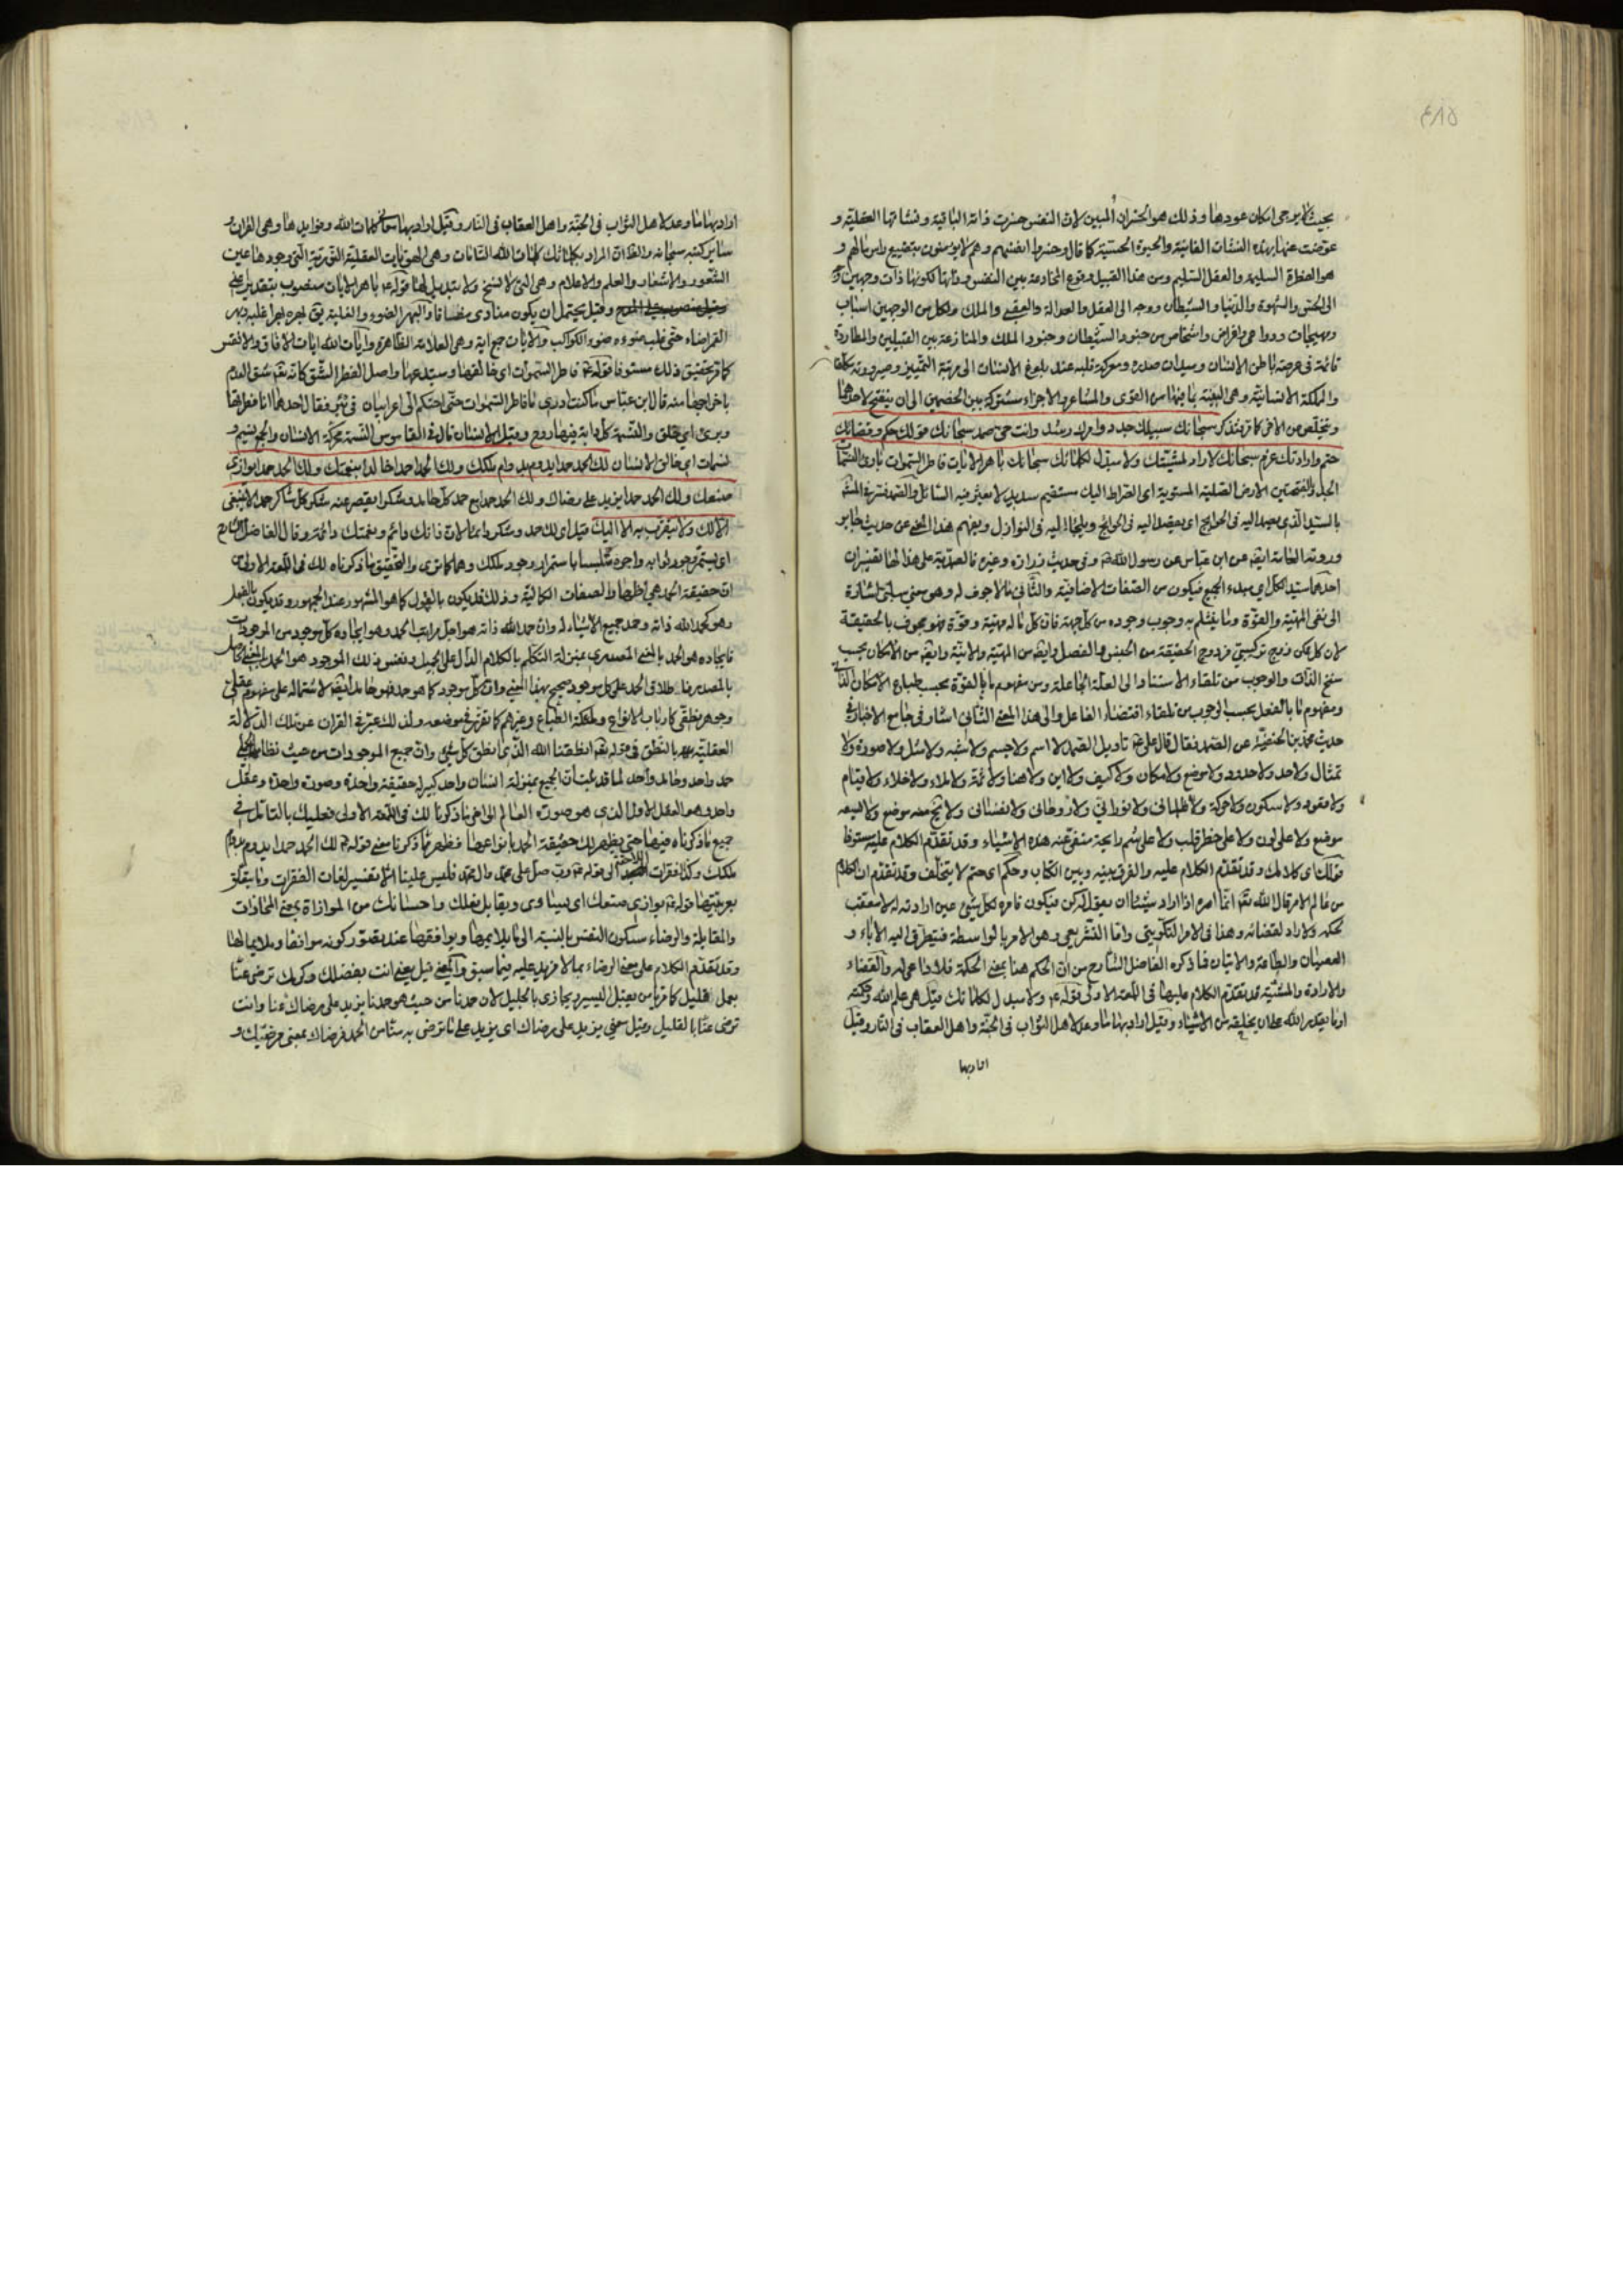 ٤١٥
بحيث لا يرجى امكان عودها وذلك هو الخسران المبين لان النفس خسرت ذاته الباقية ونشأتها العقلية و
عوضت عنها بهذه النشأت الفانية والحيوة الحسية كما قال وخسروا انفسهم وهم لا يؤمنون بتضييع راس مالهم و
هو الفطرة السليمة والعقل السليم ومن هذا القبيل وقوع المخادعة بين النفس وذاتها لكونها ذات وجهين وجه
الى الحس والشهوة والدنيا والشيطان ووجه الى العقل والعدالة والعقبى والملك ولكل من الوجهين اسباب
ومهيجات ودواعى واغراض واشخاص من جنود الشيطان وجنود الملك والمنازعة بين القبيلين والمطاردة
قائمة فى عرصة باطن الانسان وميدان صدره ومعركة قلبه عند بلوغ الانسان الى مرتبة التمييز وصيرورته مكلفا
والمملكة الانسانية وهى البنية بما فيها من القوى والمشاعر والاجزاء مشتركة بين الخصمين الى ان ينفتح لاحدهما
ويتخلص من الاخر كما مر فتذكر سبحانك سبيلك جدد وامرك رشد وانت حى صمد سبحانك قولك حكم وقضائك
حتم وارادتك عزم سبحانك لا راد لمشيتك ولا مبدل لكلماتك سبحانك باهر الايات فاطر السموات بارئ النسمات
الجدد بالفتحتين الارض الصلبة المستوية اى الصراط اليك مستقيم سديد لا يعثر فيه السائل والصمد فسر فى المشهور
بالسيد الذى يصمد اليه فى الحوايج اى يقصد اليه فى الحوايج ويلجا اليه فى النوازل ويفهم هذا المعنى عن حديث جابر
وروته العامة ايضا عن ابن عباس عن رسول الله ص وفى حديث زرارة وغيره فالصمدية على هذا لها تفسيران
احدهما سيد الكل اى مبدء الجميع فيكون من الصفات الاضافية والثانى ما لا جوف له وهو معنى سلبى اشارة
الى نفى المهية والقوة وما ينثلم به وجوب وجوده من كل جهة فان كل ما له مهية وقوة فهو مجوف بالحقيقة
لان كل ممكن زوج تركيبى مزدوج الحقيقة من الجنس والفصل وايضا من المهية والانية وايضا من الامكان بحسب
سنخ الذات والوجوب من تلقاء الاستناد الى العلة الجاعلة ومن مفهوم ما بالقوة بحسب طباع الامكان الذاتى
ومفهوم ما بالفعل بحسب الوجوب من تلقاء اقتضاء الفاعل والى هذا المعنى الثانى اشار فى جامع الاخبار فى
حديث محمد بن الحنفية عن الصمد فقال قال على ع تاويل الصمد لا اسم ولا جسم ولا شبه ولا مثل ولا صورة ولا
تمثال ولا حد ولا حدود ولا موضع ولا مكان ولا كيف ولا اين ولا هنا ولا ثمة ولا ملاء ولا خلاء ولا قيام
ولا قعود ولا سكون ولا حركة ولا ظلمانى ولا نورانى ولا روحانى ولا نفسانى ولا يخ منه موضع ولا يسعه
موضع ولا على لون ولا على خطر قلب ولا على شم رايحة منفى عنه هذه الاشياء وقد تقدم الكلام عليه مستوفا
قولك اى كلامك وقد تقدم الكلام عليه والفرق بينه وبين الكتاب وحكم اى حتم لا يتخلف وقد تقدم ان الكلام
من عالم الامر قال الله تعالى انما امره اذا اراد شيئا ان يقول له كن فيكون فامره لكل شىء عين ارادته له لا معقب
لحكمه ولا راد لقضائه وهذا فى الامر التكوينى واما التشريعى وهو الامر بالواسطة فيتطرق اليه الاباء و
العصيان والطاعة والاتيان فما ذكره الفاضل الشارح من ان الحكم هنا بمعنى الحكمة فلا داعى له والقضاء
والارادة والمشية قد تقدم الكلام عليها فى اللمعة الاولى قوله ع ولا مبدل لكلماتك قيل هى علم الله وحكمته
او ما يقدر الله على ان يخلقه من الاشياء وقيل اراد بها ما وعد لاهل الثواب فى الجنة واهل العقاب فى النار وقيل
اراد بها
اراد بها ما وعد لاهل الثواب فى الجنة واهل العقاب فى النار وقيل اراد بها كلمات الله وفوايدها وهى القران و
ساير كتبه سبحانه والظ ان المراد بكلماتك كلمات الله التامات وهى الهويات العقلية النورية التى وجودها عين
الشعور والاشعار والعلم والاعلام وهى التى لا نسخ ولا تبديل لها قوله ع باهر الايات منصوب بتقدير
وقيل يحتمل ان يكون منادى مضافا والبهر الضوء والغلبة يق بهره بهرا غلبه وبهر
القمر اضاء حتى غلب ضوءه ضوء الكواكب والايات جمع اية وهى العلامة الظاهرة وايات الله ايات الافاق والانفس
كما مر تحقيق ذلك مستوفا قوله ع فاطر السموات اى خالقها ومبتدعها واصل الفطر الشق كانه تعالى شق العدم
باخراجها منه قال ابن عباس ما كنت ادرى ما فاطر السموات حتى احتكم الى اعرابيان فى بئر فقال احدهما انا فطرتها
وبرئ اى خلق والنسمة كل دابة فيها روح وقيل الانسان قال فى القاموس النسمة محركة الانسان والجمع نسم و
نسمات اى خالق الانسان لك الحمد حمدا يدوم بدوامك ولك الحمد حمدا خالدا بنعمتك ولك الحمد حمدا يوازى
صنعك ولك الحمد حمدا يزيد على رضاك ولك الحمد حمدا مع حمد كل حامد وشكرا يقصر عنه شكر كل شاكر حمدا لا ينبغى
الا لك ولا يتقرب به الا اليك قيل اى لك حمد وشكر دائما لان ذاتك دائم ونعمتك دائمة وقال الفاضل الشارح
ان حقيقة الحمد هى اظهار الصفات الكمالية وذلك قد يكون بالقول كما هو المشهور عند الجمهور وقد يكون بالفعل
وهو كحمد الله ذاته وحمد جميع الاشياء له وان حمد الله ذاته هو اجل مراتب الحمد وهو ايجاده كل موجود من الموجودات
فايجاده هو الحمد بالمعنى المصدرى بمنزلة التكلم بالكلام الدال على الجميل ونفس ذلك الموجود هو الحمد بالمعنى الحاصل
بالمصدر فاطلاق الحمد على كل موجود صحيح بهذا المعنى وان كل موجود كما هو حمد فهو حامد ايضا لاشتماله على مفهوم عقلى
وجوهر نطقى كارباب الانواع وملكة الطباع وغيرهم كما تقرر فى موضعه ولذلك عبر فى القران عن تلك الدلالة
العقلية بالنطق فى قوله تعالى انطقنا الله الذى انطق كل شىء وان جميع الموجودات من حيث نظامه الجملى
حمد واحد وحامد واحد لما قد ثبت ان الجميع بمنزلة انسان واحد كبير له حقيقة واحدة وصورة واحدة وعقل
واحد وهو العقل الاول الذى هو صورة العالم الى اخر ما ذكرنا لك فى اللمعة الاولى فعليك بالتامل فى
جميع ما ذكرناه فيها حتى يظهر لك حقيقة الحمد بانواعها فظهر مما ذكرنا معنى قوله ع لك الحمد حمدا يدوم بدوام
ملكك وكذا فقرات الى قوله ع رب صل على محمد وال محمد فليس علينا الا تفسير لغات الفقرات وما يتعلق
بعربيتها قوله ع يوازى صنعك اى يساوى ويقابل فعلك واحسانك من الموازاة بمعنى المحاذات
والمقابلة والرضاء سكون النفس بالنسبة الى ما يلايمها ويوافقها عند تصور كونه موافقا وملايما لها
وقد تقدم الكلام على معنى الرضاء بما لا مزيد عليه فيما سبق والمعنى قيل يعنى انت بفضلك وكرمك ترضى عنا
بعمل قليل كما مر يا من يقبل اليسير ويجازى بالجليل لان حمدنا من حيث هو حمدنا يزيد على رضاك عنا وانت
ترضى عنا بالقليل وقيل معنى يزيد على رضاك اى يزيد على ما ترضى به منا من الحمد فرضاك بمعنى مرضيك و